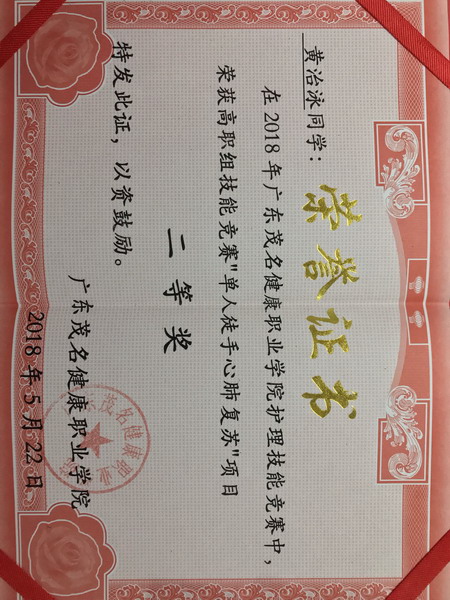 荣誉证书
黄治泳同学：
在2018年广东茂名健康职业学院护理技能竞赛中，
荣获高职组技能竞赛"单人徒手心肺复苏"项目
二等奖
特发此证，以资鼓励。
广东茂名健康职业学院
2018年5月22日